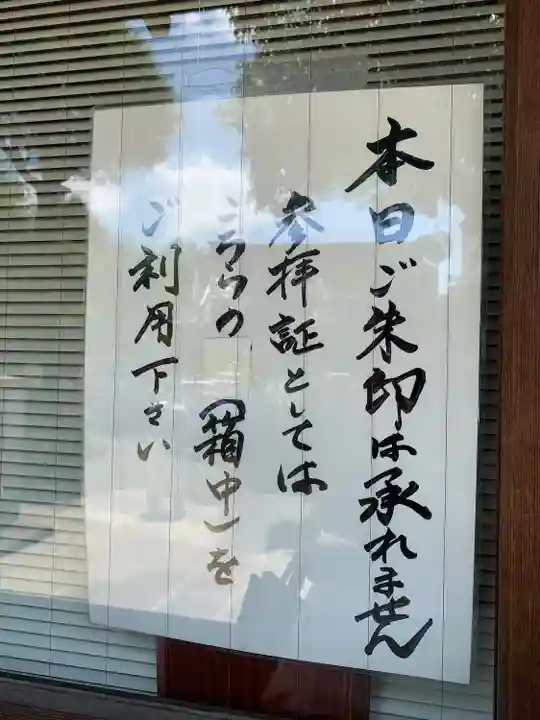 本日ご朱印は承れません
参拝証としては
こちらの(箱中)を
ご利用下さい